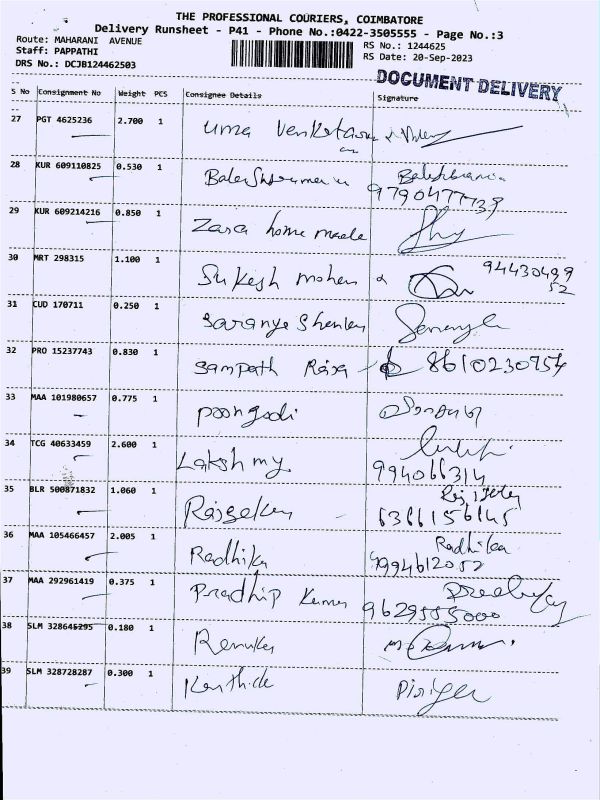 THE PROFESSIONAL COURIERS, COIMBATORE
Delivery Runsheet - P41 - Phone No.:0422-3505555 - Page No.:3
Route: MAHARANI AVENUE
RS No.: 1244625
Staff: PAPPATHI
RS Date: 20-Sep-2023
DRS No.: DCJB124462503
DOCUMENT DELIVERY
S No Consignment No Weight PCS Consignee Details Signature
27 PGT 4625236 2.700 1 uma
28 KUR 609110825 0.530 1
9790477739
29 KUR 609214216 0.850 1 Zara home made
30 MRT 298315 1.100 1 Sukesh mohan 94430499
52
31 CUD 170711 0.250 1 Saranye Shenley
32 PRO 15237743 0.830 1 Sampath Raja 8610230754
33 MAA 101980657 0.775 1 poongodi
34 TCG 40633459 2.600 1 Lakshmy
994066314
35 BLR 500871832 1.060 1 Rajsekar
6366156145
36 MAA 105466457 2.005 1 Radhika Radhika
9994612052
37 MAA 292961419 0.375 1 Pradhip Kumar
9629555000
38 SLM 328645295 0.180 1 Renuka
39 SLM 328728287 0.300 1 Karthick